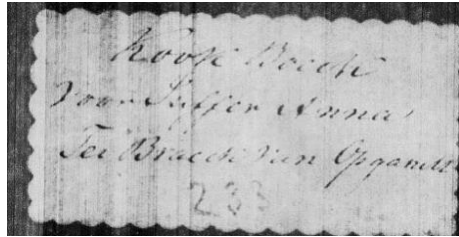 Kook Boeck
Voor Juffer Anna
Ter Braeck Van Opgandt
233